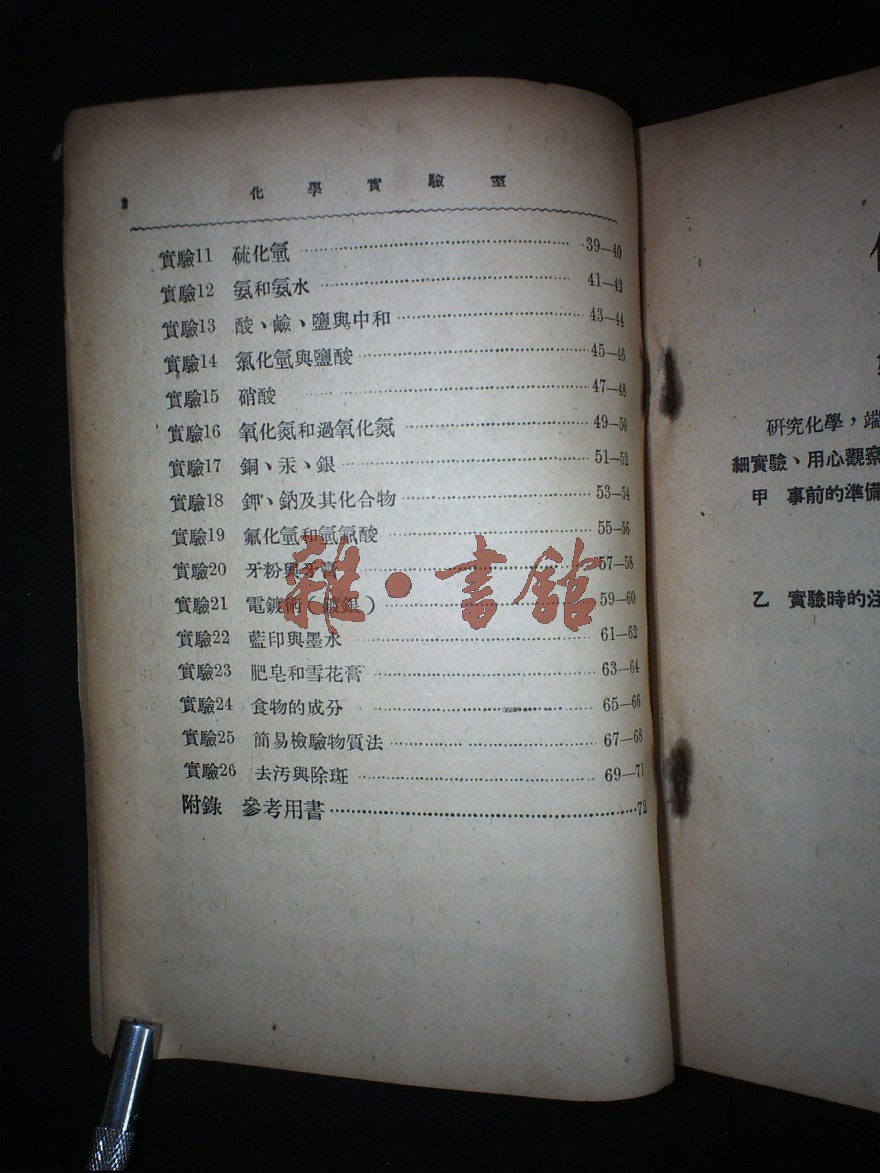 2 化學實驗室
實驗11 硫化氫 39—40
實驗12 氨和氨水 41—42
實驗13 酸、鹼、鹽與中和 43—44
實驗14 氯化氫與鹽酸 45—46
實驗15 硝酸 47—48
實驗16 氧化氮和過氧化氮 49—50
實驗17 銅、汞、銀 51—52
實驗18 鉀、鈉及其化合物 53—54
實驗19 氟化氫和氫氟酸 55—56
實驗20 牙粉與牙膏 57—58
實驗21 電鍍術(鍍銀) 59—60
實驗22 藍印與墨水 61—62
實驗23 肥皂和雪花膏 63—64
實驗24 食物的成分 65—66
實驗25 簡易檢驗物質法 67—68
實驗26 去污與除斑 69—71
附錄 參考用書 72
雜·書館
研究化學，端
細實驗、用心觀察
甲 事前的準備
乙 實驗時的注